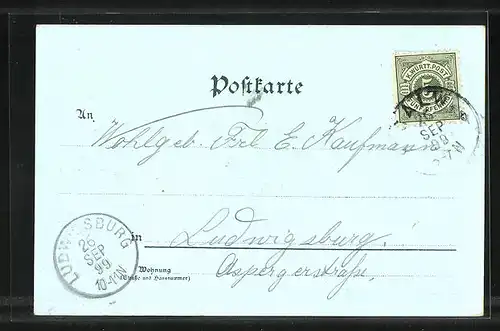 K. WÜRTT. POST
5
FÜNF PFENNIG
SEP
99
Postkarte
An
Wohlgeb. Frl E. Kaufmann
in Ludwigsburg
Wohnung
(Straße und Hausnummer)
Aspergerstraße,
LUDWIGSBURG
26
SEP
99
10-11V